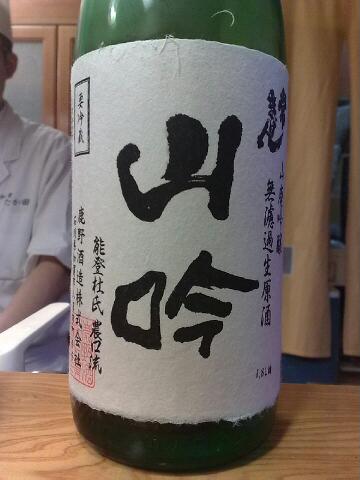 常きげん
山廃吟醸
無濾過生原酒
山吟
能登杜氏 農口流
鹿野酒造株式会社
要冷蔵
1.8L詰